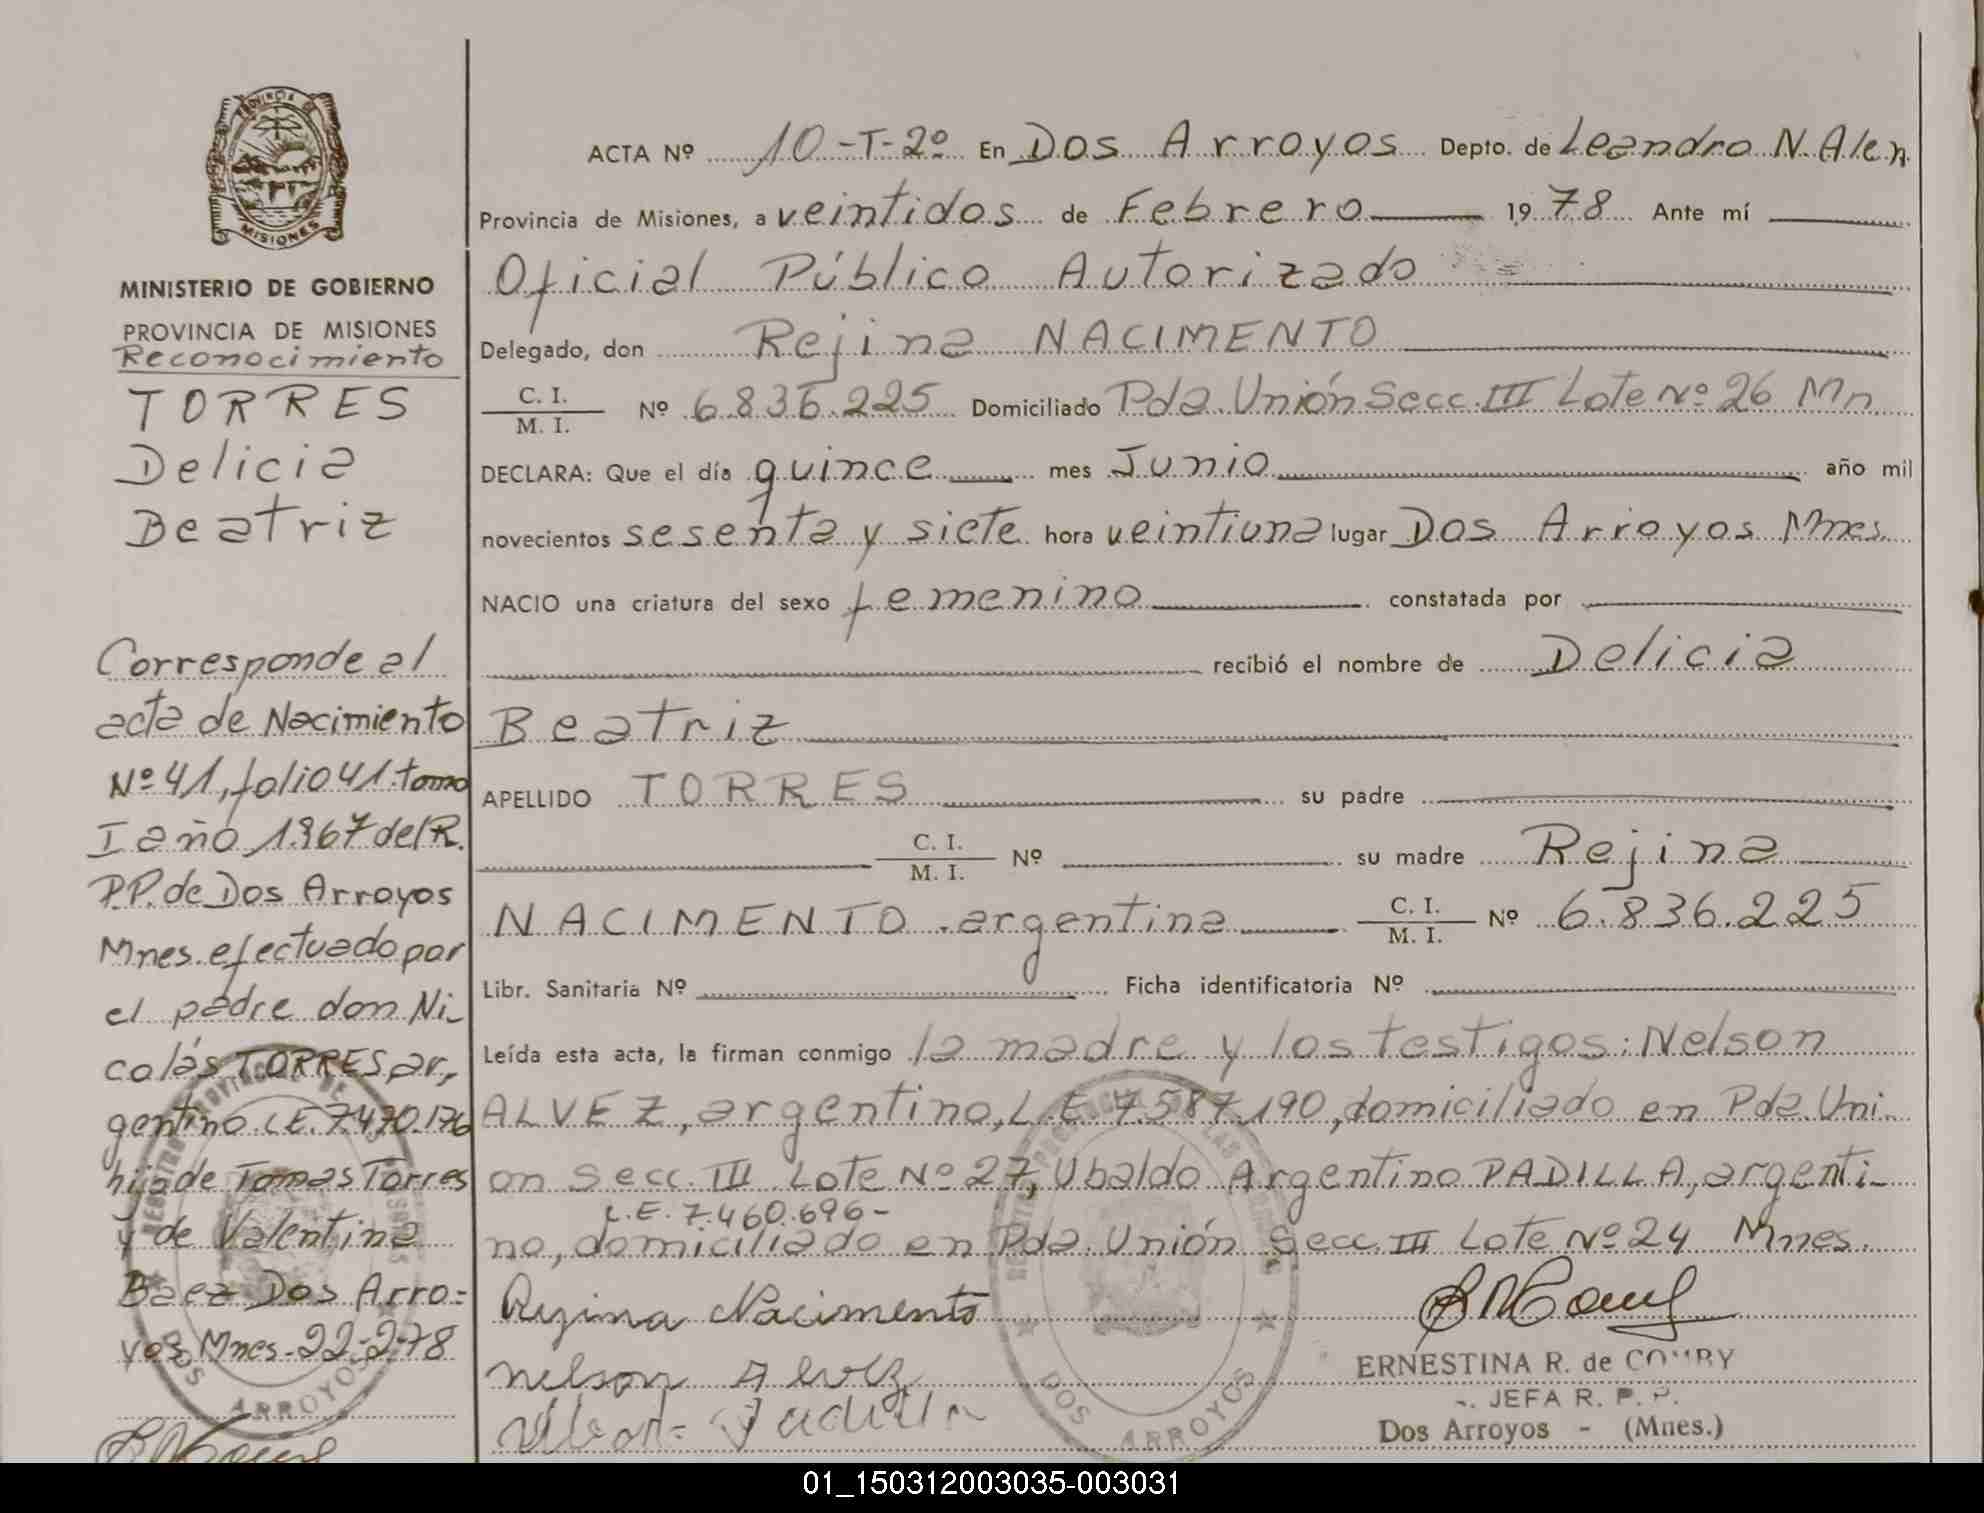 PROVINCIA DE
MISIONES
MINISTERIO DE GOBIERNO
PROVINCIA DE MISIONES
Reconocimiento
TORRES
Delicia
Beatriz
Corresponde al
acta de Nacimiento
Nº 41, folio 41 tomo
I año 1967 del R.
P.P. de Dos Arroyos
Mnes. efectuado por
el padre don Ni-
colás TORRES, ar,
gentino L.E. 7.470.176
hijo de Tomas Torres
y de Valentina
Baez Dos Arro=
yos Mnes. 22-2-78
DOS ARROYOS
ACTA Nº 10-T-2º En Dos Arroyos Depto. de Leandro N. Alen
Provincia de Misiones, a veintidos de Febrero 1978 Ante mí
Oficial Público Autorizado
Delegado, don Rejina NACIMENTO
C. I.
M. I. Nº 6.836.225 Domiciliado Pda. Unión Secc. III Lote Nº 26 Mn
DECLARA: Que el día quince mes Junio año mil
novecientos sesenta y siete hora veintiuna lugar Dos Arroyos Mnes.
NACIO una criatura del sexo femenino constatada por
recibió el nombre de Delicia
Beatriz
APELLIDO TORRES su padre
C. I.
M. I. Nº su madre Rejina
NACIMENTO . argentina C. I.
M. I. Nº 6.836.225
Libr. Sanitaria Nº Ficha identificatoria Nº
Leída esta acta, la firman conmigo la madre y los testigos: Nelson
ALVEZ, argentino, L.E. 7.587.190, domiciliado en Pda. Uni-
on Secc. III Lote Nº 27, Ubaldo Argentino PADILLA, argenti-
L.E. 7.460.696-
no, domiciliado en Pda. Unión Secc. III Lote Nº 24 Mnes.
Rejina Nacimento
Nelson Alvez
Padilla
ERNESTINA R. de COMBY
JEFA R. P. P.
Dos Arroyos - (Mnes.)
DOS ARROYOS
01_150312003035-003031